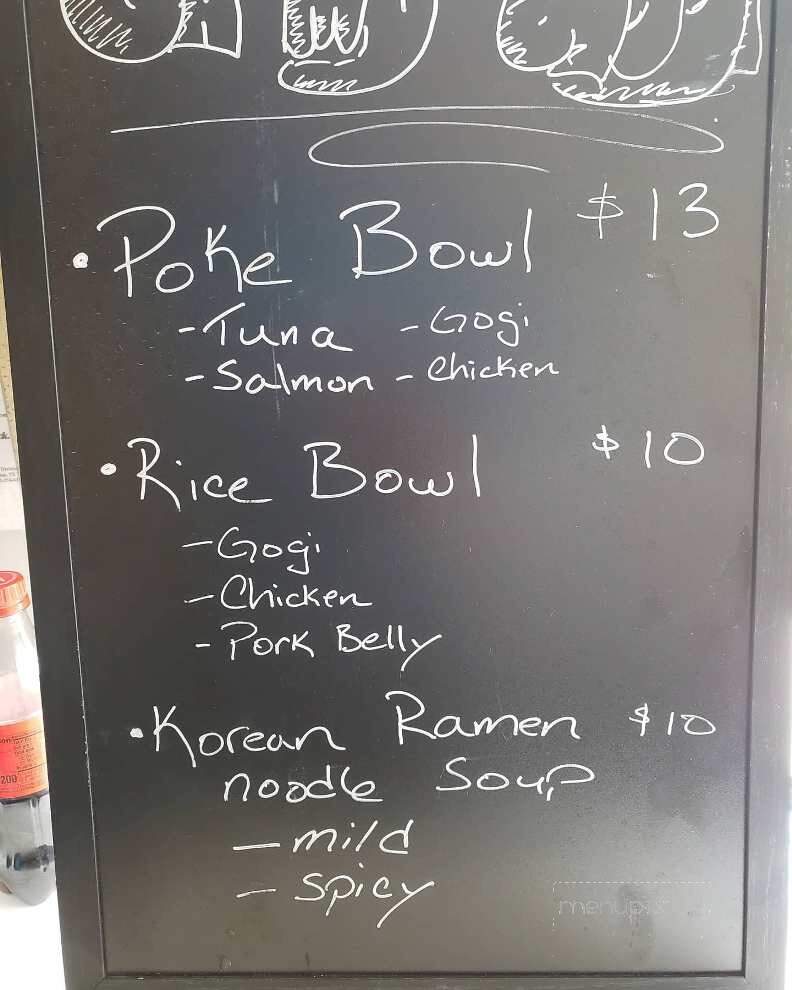 • Poke Bowl $13
- Tuna - Gogi
- Salmon - Chicken
• Rice Bowl $10
- Gogi
- Chicken
- Pork Belly
• Korean Ramen $10
noodle Soup
- mild
- spicy
menupix
200